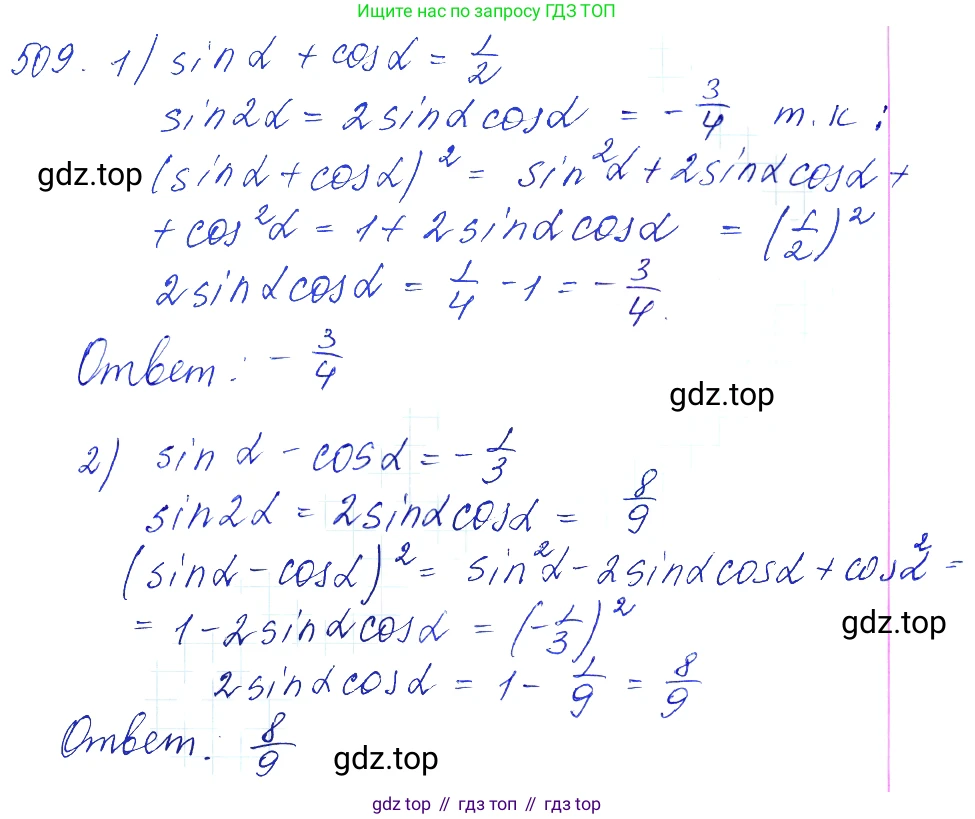 Ищите нас по запросу ГДЗ ТОП
509. 1) sin α + cos α = 1/2
sin2α = 2sinα cosα = - 3/4 т.к:
gdz.top (sinα + cosα)² = sin²α + 2sinα cosα +
+ cos²α = 1 + 2sinα cosα = (1/2)²
2sinα cosα = 1/4 - 1 = - 3/4.
Ответ: - 3/4
gdz.top
2) sin α - cosα = - 1/3
sin2α = 2sinα cosα = 8/9
(sinα - cosα)² = sin²α - 2sinα cosα + cos²α =
= 1 - 2sinα cosα = (-1/3)²
gdz.top
2sinα cosα = 1 - 1/9 = 8/9
Ответ. 8/9
gdz.top
gdz top // гдз топ // gdz top